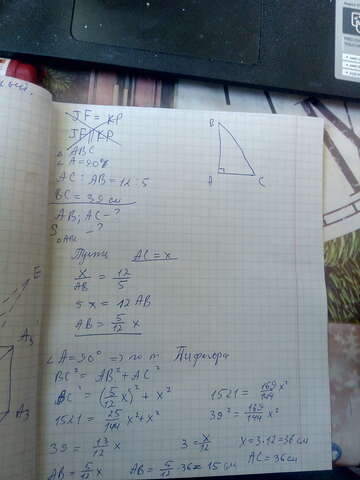 JF = KP
JF || KP
△ ABC
∠A = 90°
AC : AB = 12 : 5
BC = 39 см
AB, AC - ?
S △ABC - ?
B
A
C
Пусть AC = x
x/AB = 12/5
5x = 12 AB
AB = 5/12 x
∠A = 90° => по т. Пифагора
BC² = AB² + AC²
BC² = (5/12 x)² + x²
1521 = 25/144 x² + x²
1521 = 169/144 x²
39² = 169/144 x²
39 = 13/12 x
3 = x/12
x = 3·12 = 36 см
AC = 36 см
AB = 5/12 x
AB = 5/12 · 36 = 15 см
E
A₅
A₃